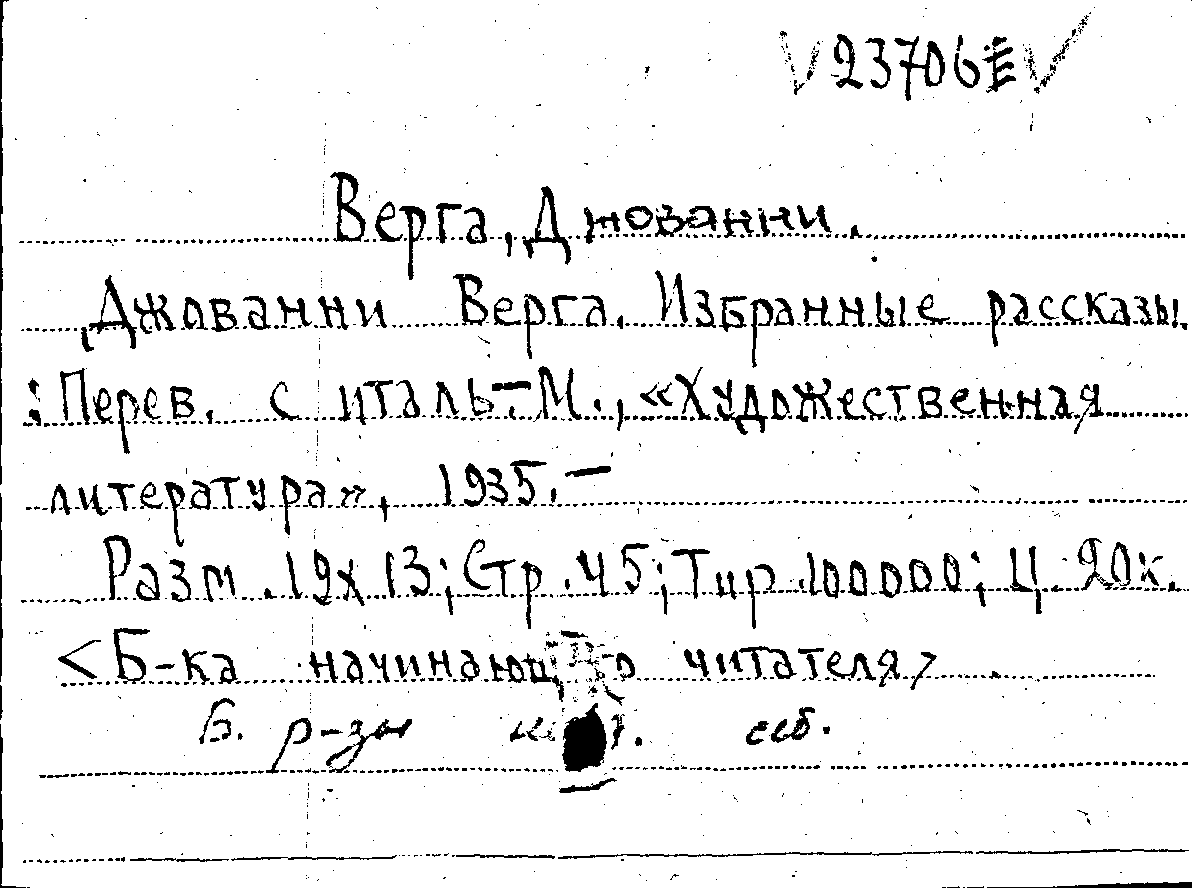 23706
Верга, Джованни.
Джованни Верга. Избранные рассказы.
: Перев. с италь.— М., «Художественная
литература», 1935. —
Разм. 19х13; Стр. 45; Тир. 100000; Ц. 20к.
<Б-ка начинающего читателя>.
Б. р-зы